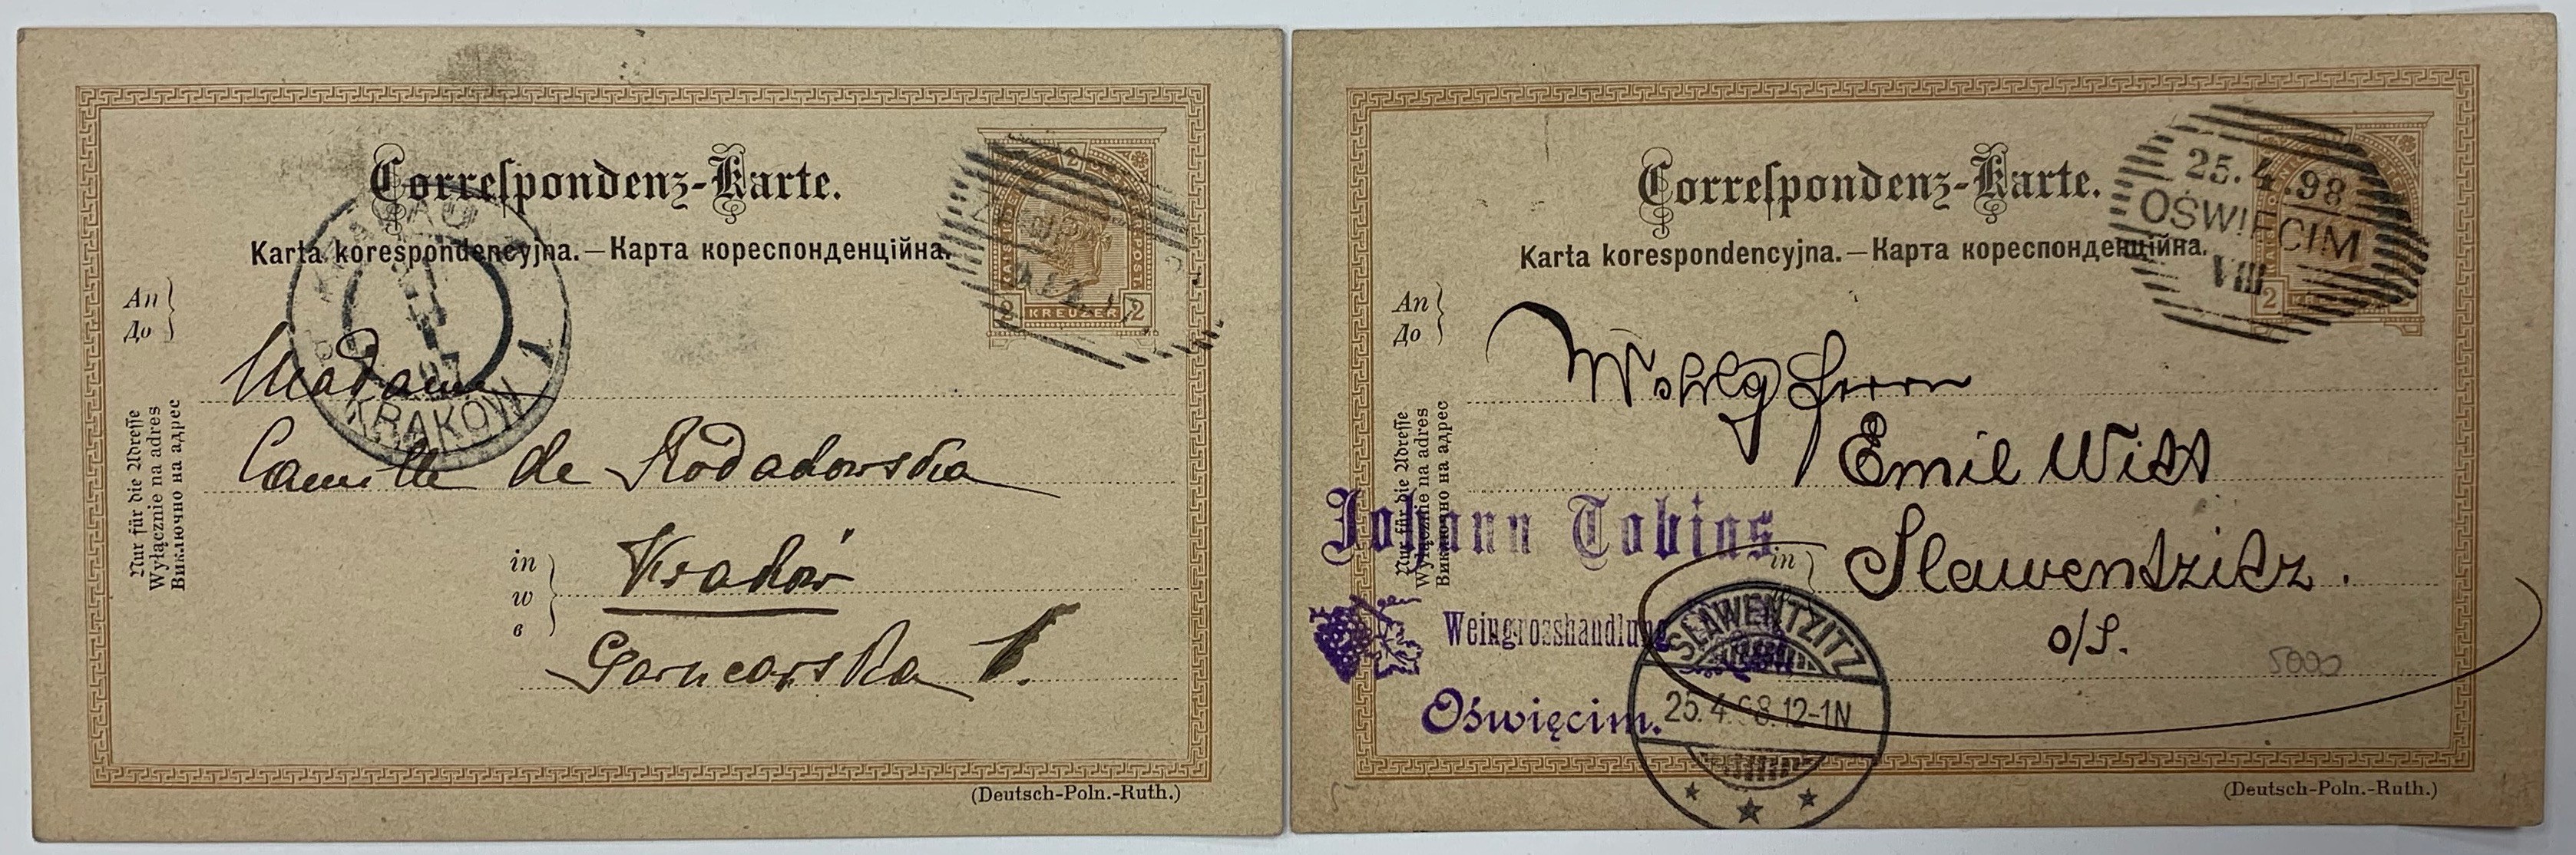 Correspondenz-Karte.
Karta korespondencyjna. — Карта кореспонденційна.
2
2 KREUZER 2
An
До
KRAKÓW
97
Madame
Camille de Rodakowska
in
w
в
Kraków
Garncarska 1.
Nur für die Adresse
Wyłącznie na adres
Виключно на адрес
(Deutsch-Poln.-Ruth.)
Correspondenz-Karte.
Karta korespondencyjna. — Карта кореспонденційна.
25.4.98
OŚWIĘCIM
VIII
2
An
До
Wohlg Herrn
Emil Witt
in
Slawentzitz.
o/S.
Nur für die Adresse
Wyłącznie na adres
Виключно на адрес
Johann Tobias
Weingrosshandlung
Oświęcim.
SLAWENTZITZ
25.4.98.12-1N
5000
(Deutsch-Poln.-Ruth.)